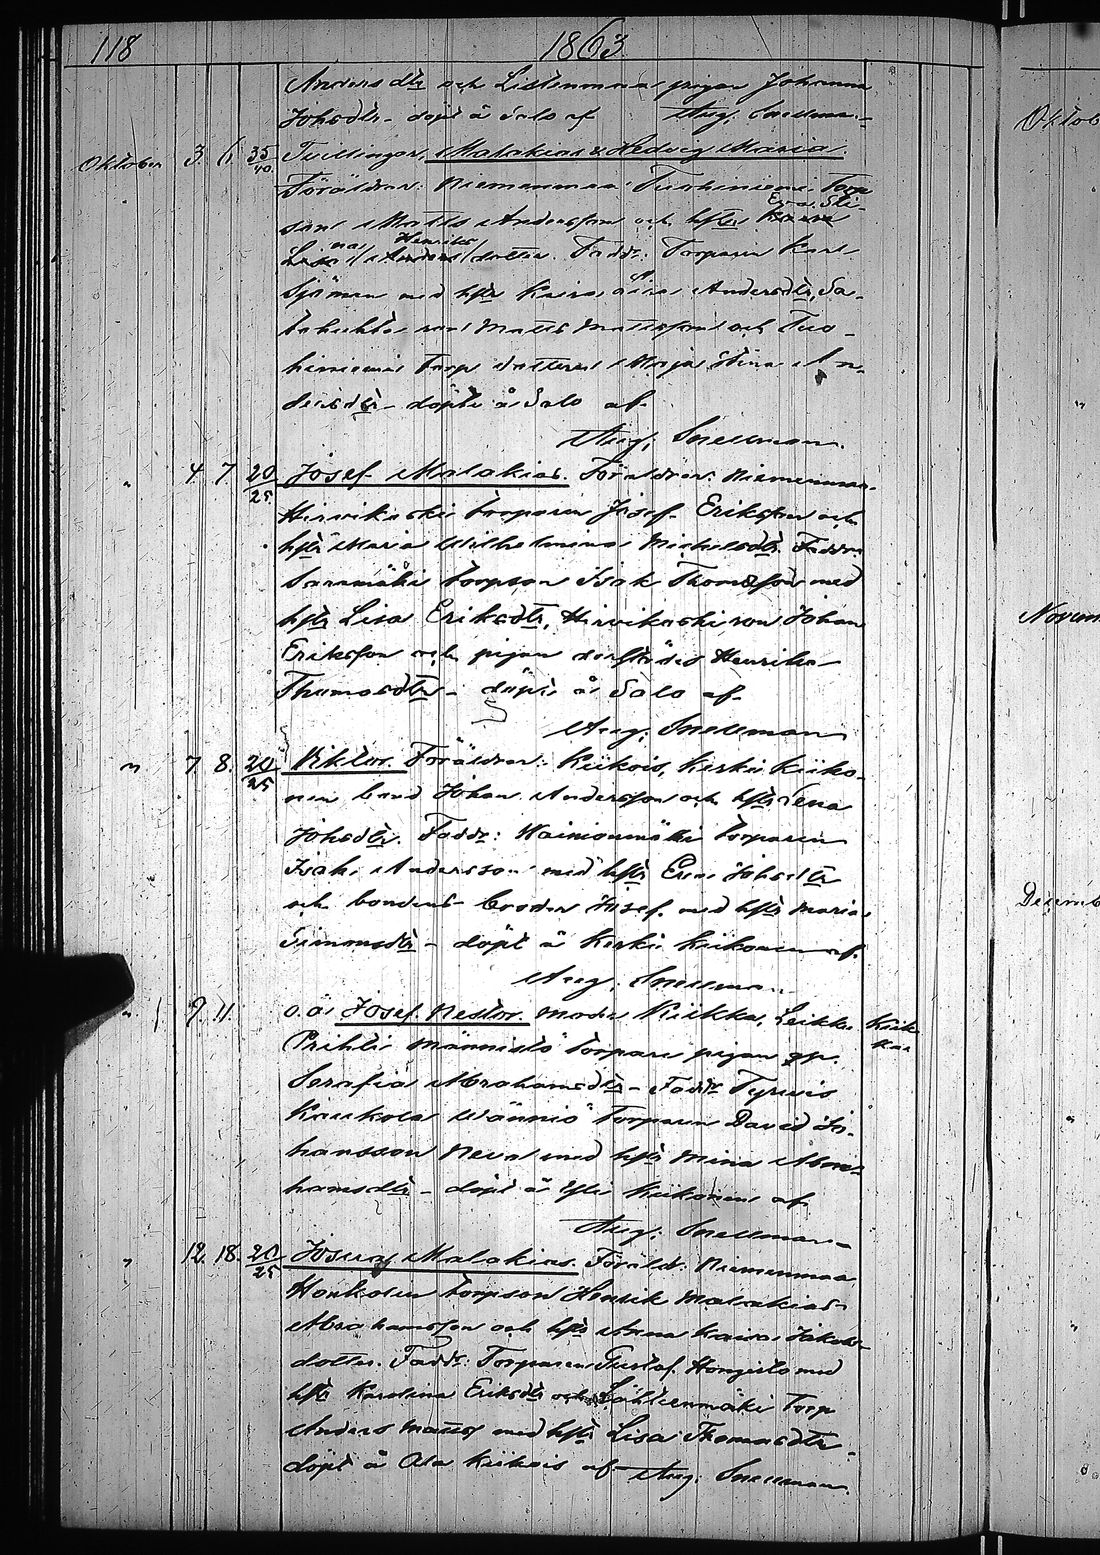 118 1863
Anders dtr och Listenmaa pigan Johanna
Johsdtr - döpt å Salo af Aug. Snellman -
Oktober 3. 6. 35/40. Tvillingar, Malakias & Hedvig Maria.
Föräldrar: Niemenmaa Tuohiniemi Torp
son Matts Andersson och hstr Eva Sti-
na Henriks dotter. Faddr: Torparen Karl
Sjöman med hstr Kaisa Andersdtr, Sa-
son Matts Mattsson och Tuo-
hiniemi torp dottren Maja Stina An-
dersdtr - döpte å Salo af
Aug. Snellman.
" 4 7. 20/25 Josef Malakias. Föräldrar: Niemenmaa
Hirvikoski torparen Josef Eriksson och
hstr Maria Wilhelmina Michelsdtr. Faddr:
Saramäki torpson Isak Thomasson med
hstr Lisa Eriksdtr, Hirvikoski son Johan
Eriksson och pigan derstädes Henrika
Thomasdtr - döpt å Salo af
Aug. Snellman
" 7 8. 20/25 Viktor. Föräldrar: Kiikois, Keski Kiiko-
nen bond Johan Andersson och hstr Lena
Johsdtr. Faddr: Wainionmäki torparen
Isak Andersson med hstr Eva Johsdtr
och bondens broder Josef med hstr Maria
Simonsdtr - döpt å Keski Kiikonen af
Aug. Snellman.
" 1 9. 11. o.ä. Josef Nestor. Moder Kiikka, Leikku Kiik-
kas
Prihti Männistö torpare pigan
Serafia Abrahamsdtr - Faddr Tyrvis
Kaukola Wännis torparen David Jo-
hansson Neva med hstr Mina Abra-
hamsdtr - döpt å Yli Kiikonen af
Aug. Snellman -
" 12. 18. 20/25 Malakias. Föräldr. Niemenmaa
Honkolen torpson Henrik Malakias
Abrahamsson och hstr Anna Kaisa Jakobs-
dotter. Faddr: Torparen Gustaf Hongisto med
hstr Karolina Eriksdtr och Lähteenmäki Torp
Anders Matts med hstr Lisa Thomasdtr -
döpt å Ala Kiikois af Aug. Snellman.
Oktob
"
Novem
Decemb
"
"